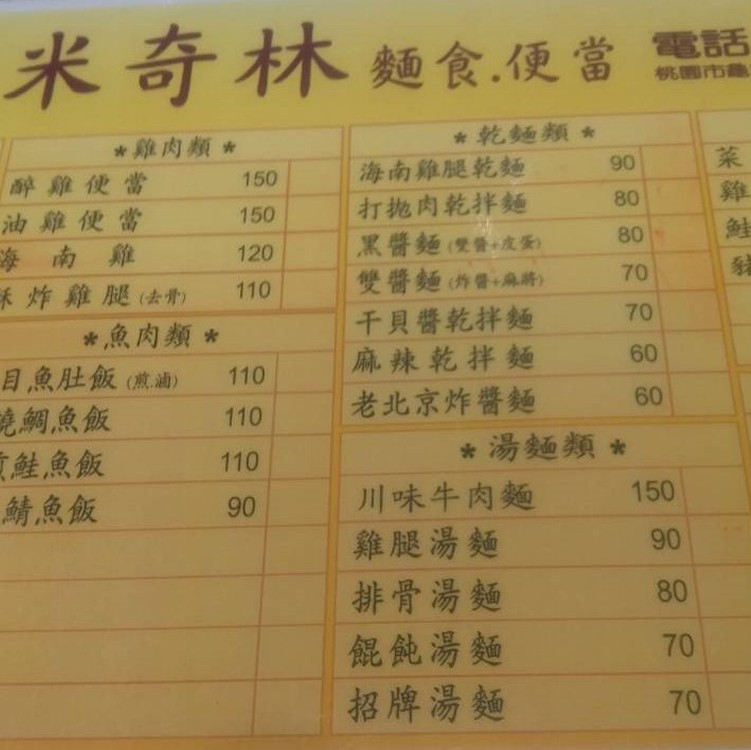 米奇林 麵食.便當 電話
桃園市龜
*雞肉類*
醉雞便當 150
油雞便當 150
海南雞 120
酥炸雞腿(去骨) 110
*魚肉類*
目魚肚飯(煎.滷) 110
燒鯛魚飯 110
煎鮭魚飯 110
鯖魚飯 90
*乾麵類*
海南雞腿乾麵 90
打拋肉乾拌麵 80
黑醬麵(雙醬+皮蛋) 80
雙醬麵(炸醬+麻將) 70
干貝醬乾拌麵 70
麻辣乾拌麵 60
老北京炸醬麵 60
*湯麵類*
川味牛肉麵 150
雞腿湯麵 90
排骨湯麵 80
餛飩湯麵 70
招牌湯麵 70
菜
雞
鮭
豬